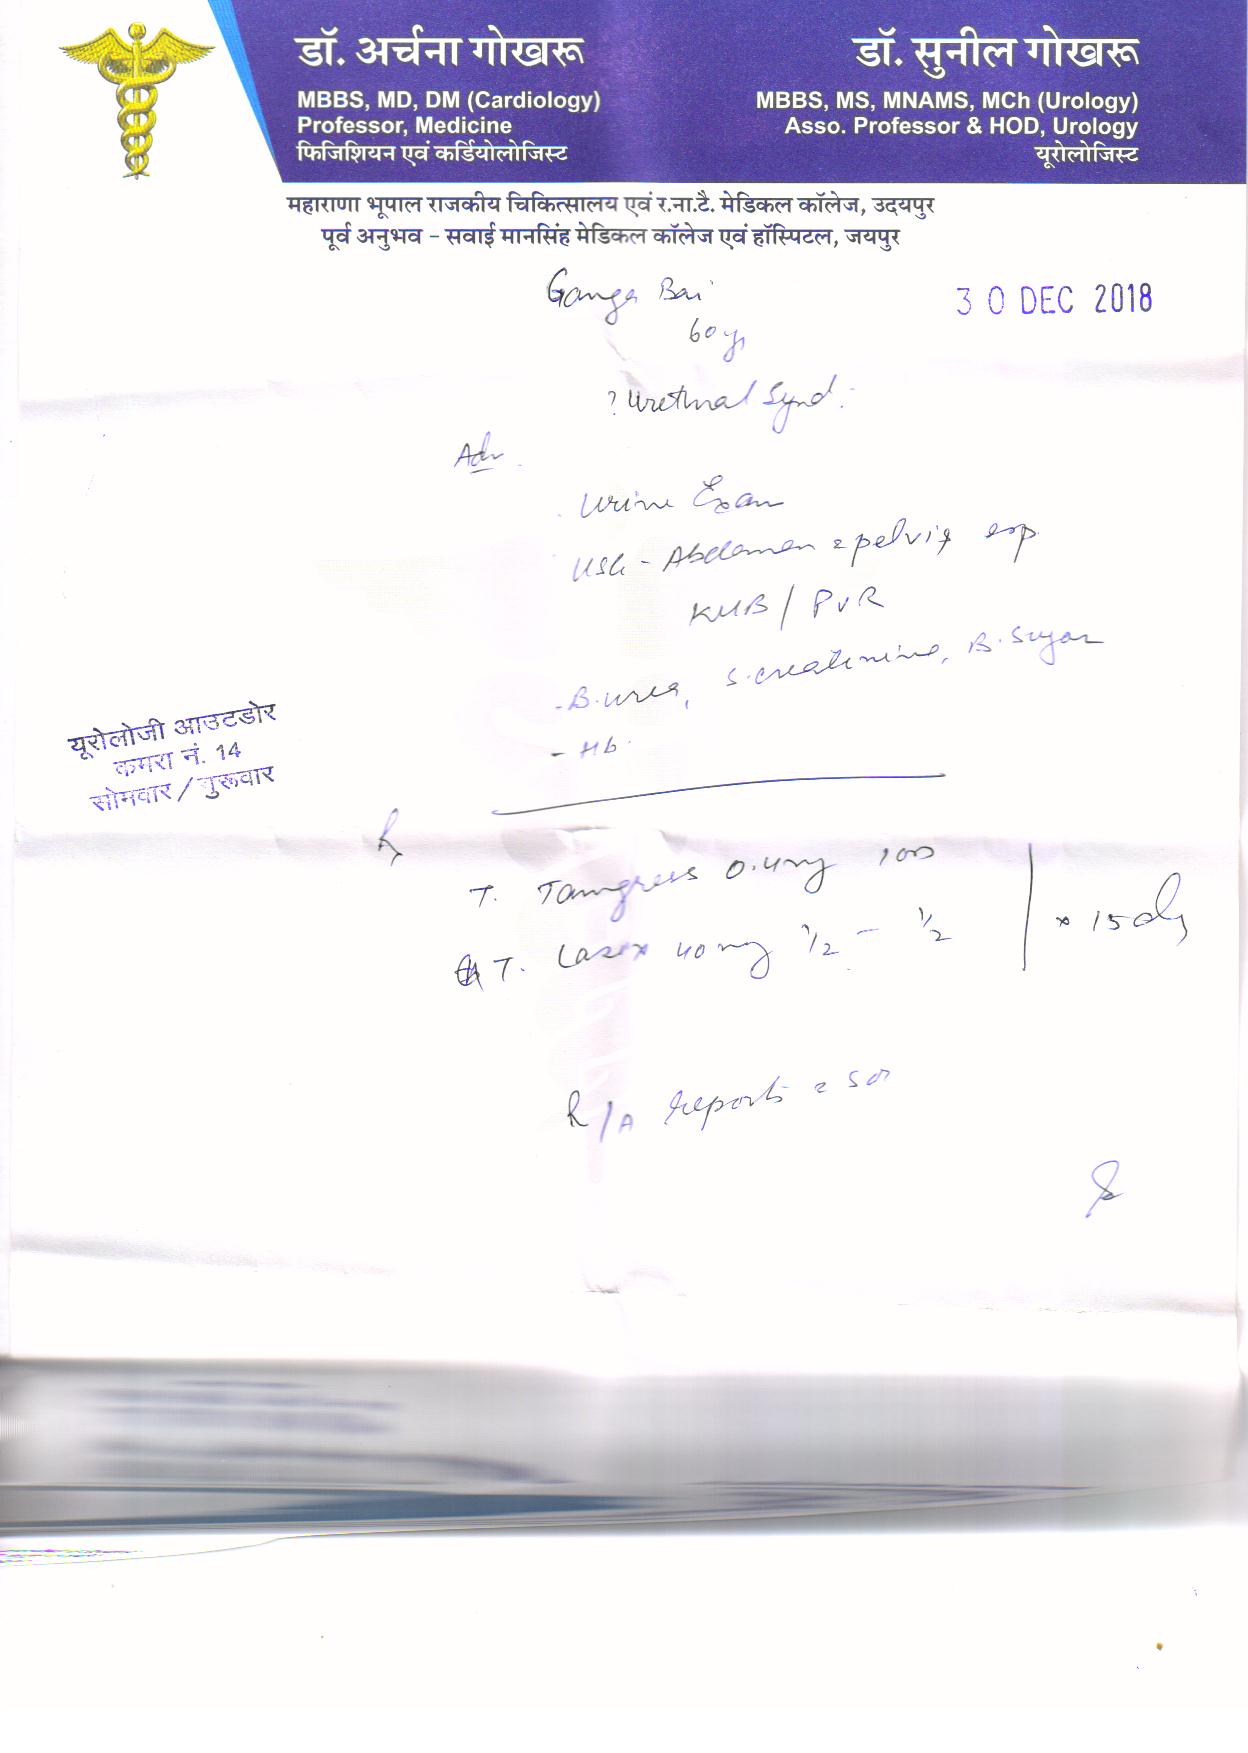 डॉ. अर्चना गोखरू
MBBS, MD, DM (Cardiology)
Professor, Medicine
फिजिशियन एवं कर्डियोलोजिस्ट
डॉ. सुनील गोखरू
MBBS, MS, MNAMS, MCh (Urology)
Asso. Professor & HOD, Urology
यूरोलोजिस्ट
महाराणा भूपाल राजकीय चिकित्सालय एवं र.ना.टै. मेडिकल कॉलेज, उदयपुर
पूर्व अनुभव - सवाई मानसिंह मेडिकल कॉलेज एवं हॉस्पिटल, जयपुर
Ganga Bai
30 DEC 2018
60 y
? Urethral Synd.
Adv
Urine Exam
USG - Abdomen pelvis esp
KUB / PVR
- B. urea, S. creatinine, B. Sugar
- Hb
यूरोलोजी आउटडोर
कमरा नं. 14
सोमवार / गुरूवार
T. 0.4mg
T. Lasix 40 mg 1/2 - 1/2
x 15 days
R/A reports